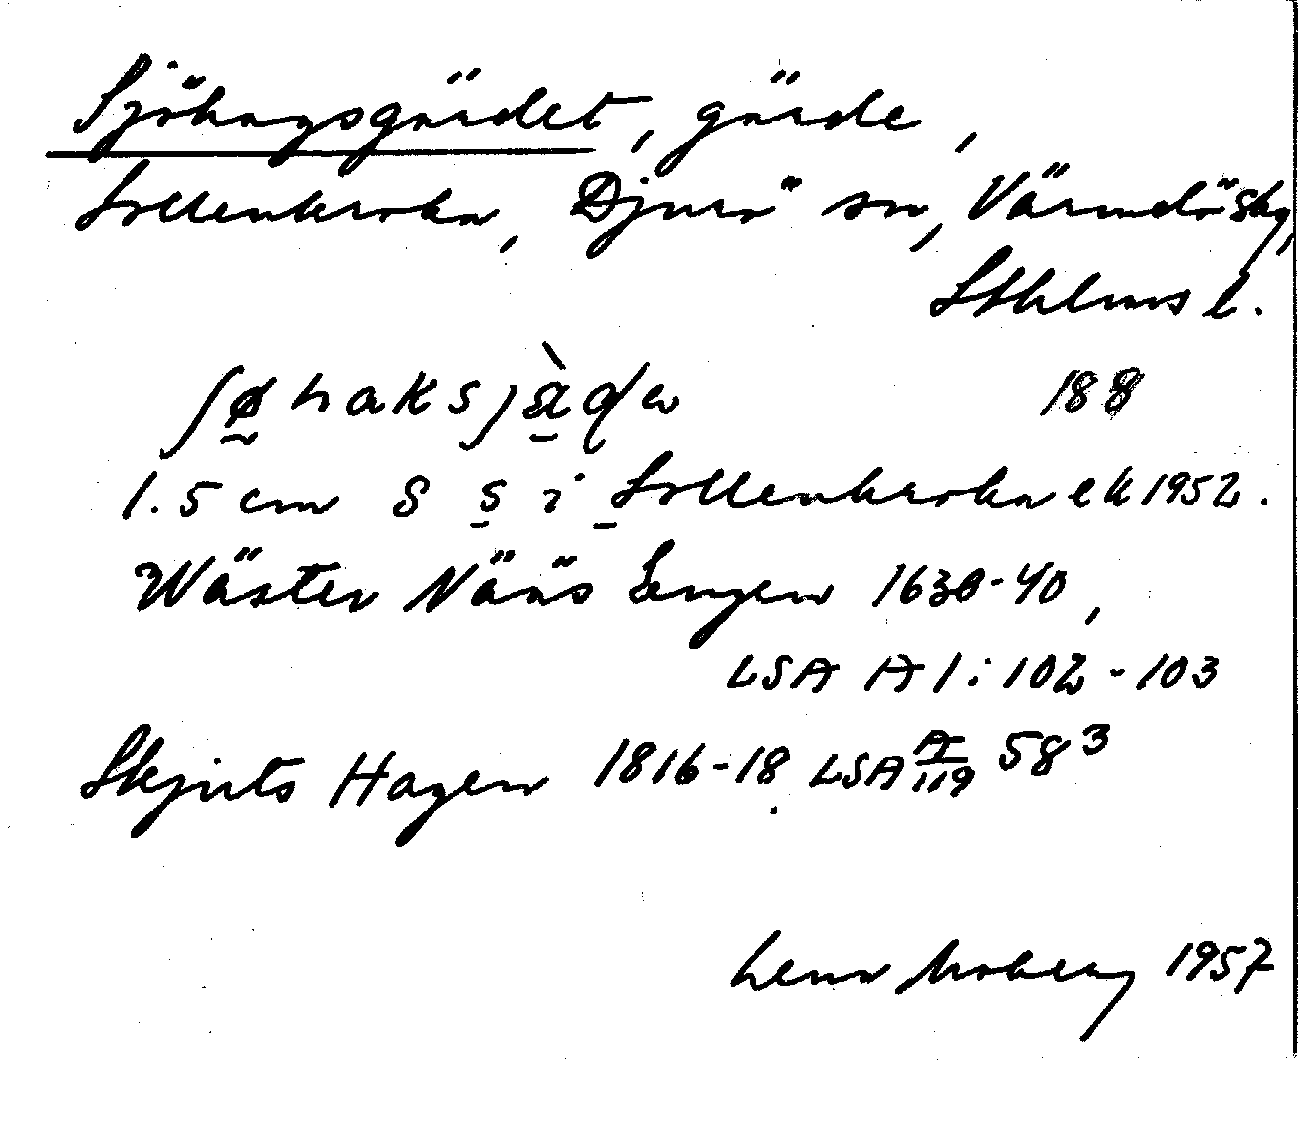 Sjöhagsgärdet, gärde,
Sollenkroka, Djurö sn, Värmdö skg,
Sthlms l.
188
1.5 cm S s i Sollenkroka ek 1952.
Wäster Nääs Lengen 1630-40,
LSA A1:102-103
Skjuts Hagen 1816-18 LSA A/119 58³
Lena Moberg 1957